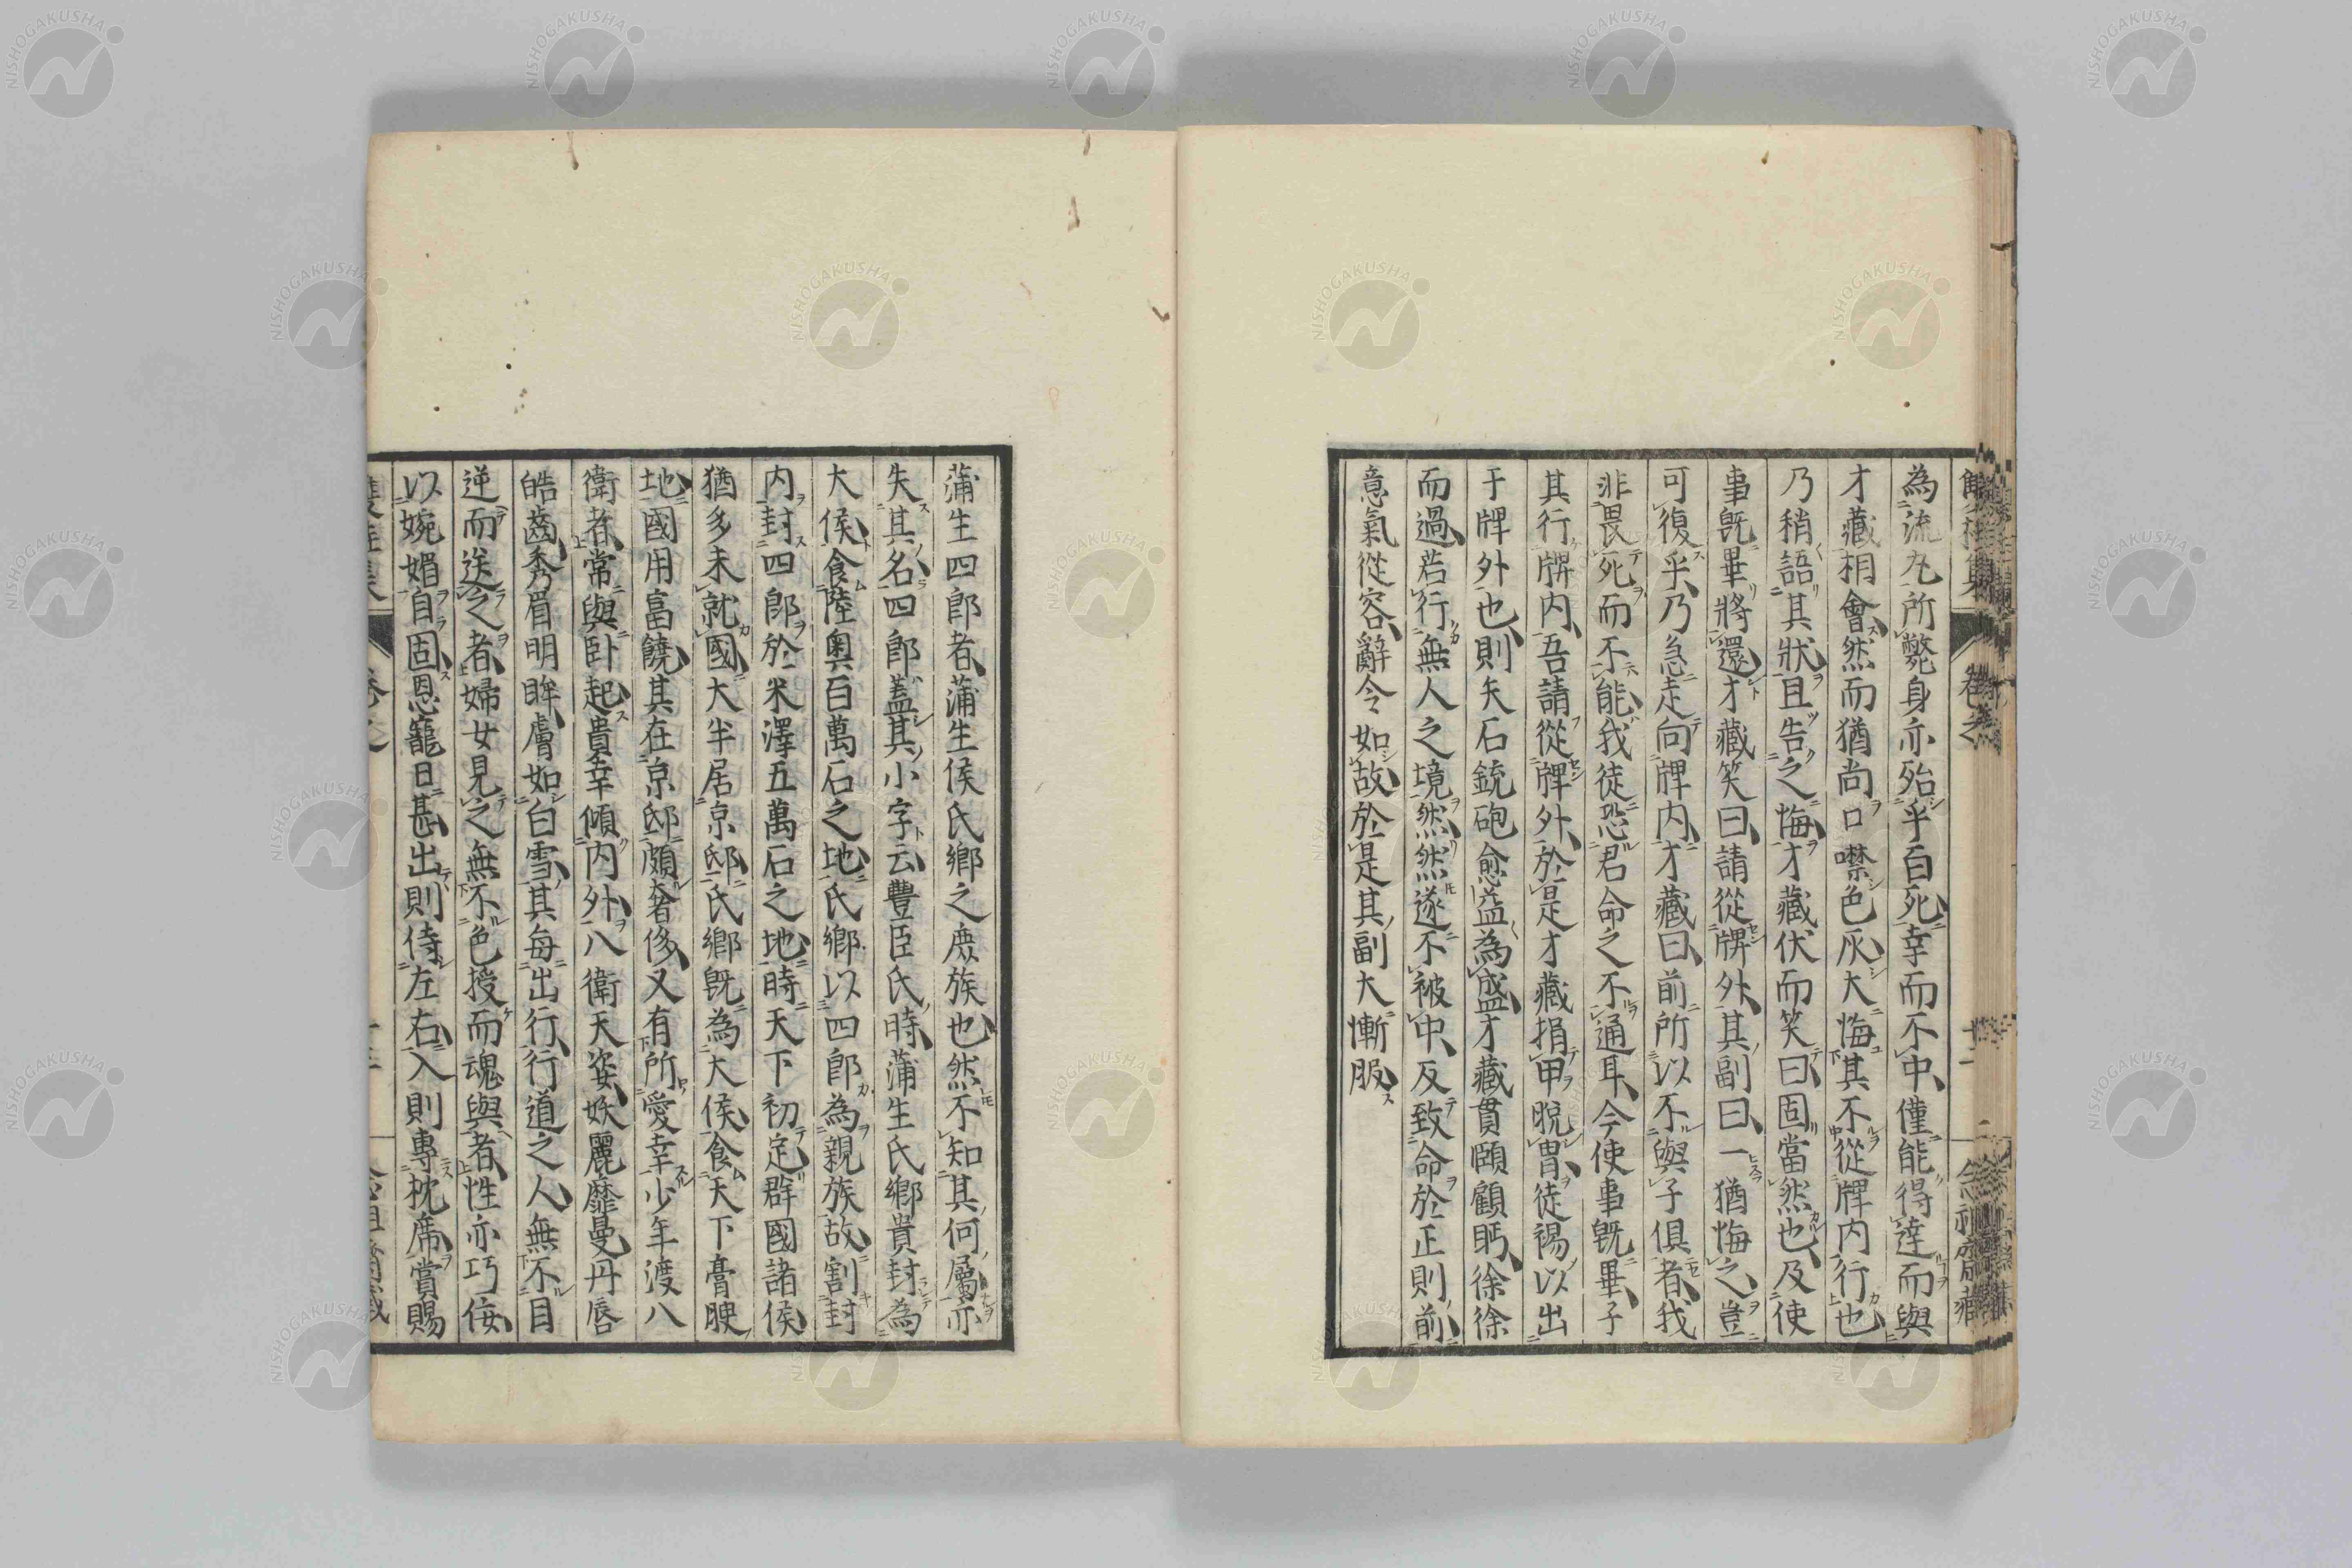 為流丸所斃身亦殆乎百死幸而不中僅能得達而與
才藏相會然而猶尚口噤色灰大悔其不從牌內行也
乃稍語其狀且告之悔才藏伏而笑曰固當然也及使
事既畢將還才藏笑曰請從牌外其副曰一猶悔之豈
可復乎乃急走向牌内才藏曰前所以不與子俱者我
非畏死而不能我徒恐君命之不通耳今使事既畢子
其行牌内吾請從牌外於是才藏捐甲脫冑徒裼以出
于牌外也則矢石銃砲愈益為盛才藏貫頤顧眄徐徐
而過若行無人之境然然遂不被中反致命於正則前
意氣從容辭令如故於是其副大慚服
蒲生四郎者蒲生侯氏鄉之庶族也然不知其何屬亦
失其名四郎蓋其小字云豊臣氏時蒲生氏鄉貴封為
大侯食陸奥百萬石之地氏鄉以四郎為親族故割封
内封四郎於米澤五萬石之地時天下初定群國諸侯
猶多未就國大半居京邸氏鄉既為大侯食天下膏腴
地國用富饒其在京邸頗奢侈又有所愛幸少年渡八
衛者常與臥起貴幸傾内外八衛天姿妖麗靡曼丹唇
皓齒秀眉明眸膚如白雪其每出行行道之人無不目
逆而送之者婦女見之無不色授而魂與者性亦巧佞
以婉媚自固恩寵日甚出則侍左右入則專枕席賞賜
NISHOGAKUSHA